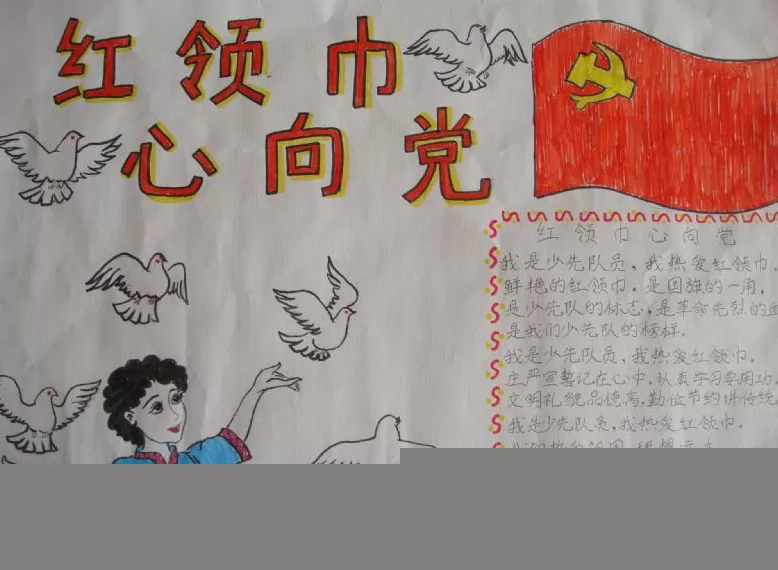 红领巾
心向党
红领巾心向党
我是少先队员，我热爱红领巾。
鲜艳的红领巾，是国旗的一角，
是少先队的标志，是革命先烈的
是我们少先队的榜样。
我是少先队员，我热爱红领巾。
庄严宣誓记在心中，认真学习要用功。
文明礼貌品德高，勤俭节约讲传统
我是少先队员，我热爱红领巾。